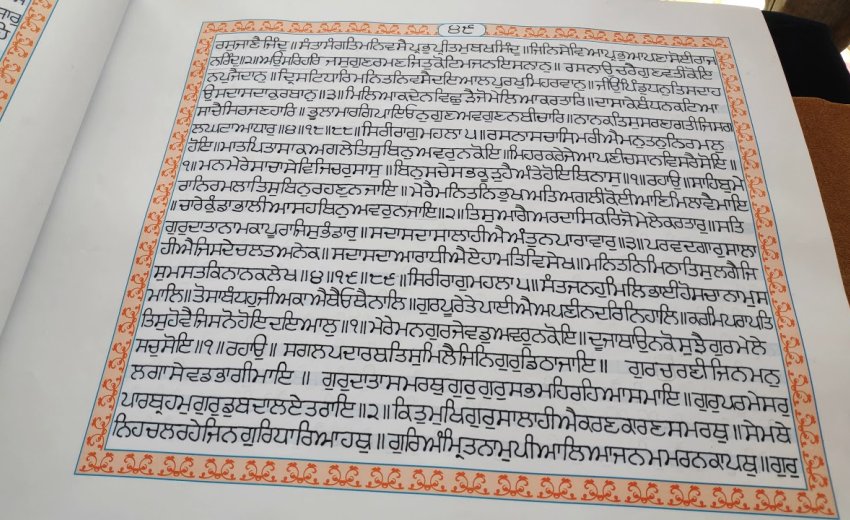 ੪੯
ਰਸੁਜਾਣੈਜਿੰਦੁ॥ਸੰਤਾਸੰਗਤਿਮਨਿਵਸੈਪ੍ਰਭੁਪ੍ਰੀਤਮੁਬਖਸਿੰਦੁ॥ਜਿਨਿਸੇਵਿਆਪ੍ਰਭੁਆਪਣਾਸੋਈਰਾਜ
ਨਰਿੰਦੁ॥੨॥ਅਉਸਰਿਹਰਿਜਸੁਗੁਣਰਮਣਜਿਤੁਕੋਟਿਮਜਨਇਸਨਾਨੁ॥ਰਸਨਾਉਚਰੈਗੁਣਵਤੀਕੋਇ
ਨਪੁਜੈਦਾਨੁ॥ਦ੍ਰਿਸਟਿਧਾਰਿਮਨਿਤਨਿਵਸੈਦਇਆਲਪੁਰਖੁਮਿਹਰਵਾਨੁ॥ਜੀਉਪਿੰਡੁਧਨੁਤਿਸਦਾਹ
ਉਸਦਾਸਦਾਕੁਰਬਾਨੁ॥੩॥ਮਿਲਿਆਕਦੇਨਵਿਛੁੜੈਜੋਮੇਲਿਆਕਰਤਾਰਿ॥ਦਾਸਾਕੇਬੰਧਨਕਟਿਆ
ਸਾਚੈਸਿਰਜਣਹਾਰਿ॥ਭੂਲਾਮਾਰਗਿਪਾਇਓਨੁਗੁਣਅਵਗੁਣਨਬੀਚਾਰਿ॥ਨਾਨਕਤਿਸੁਸਰਣਾਗਤੀਜਿਸਗ
ਲਘਟਾਆਧਾਰੁ॥੪॥੧੮॥੮੮॥ਸਿਰੀਰਾਗੁਮਹਲਾ੫॥ਰਸਨਾਸਚਾਸਿਮਰੀਐਮਨੁਤਨੁਨਿਰਮਲੁ
ਹੋਇ॥ਮਾਤਪਿਤਾਸਾਕਅਗਲੇਤਿਸੁਬਿਨੁਅਵਰੁਨਕੋਇ॥ਮਿਹਰਕਰੇਜੇਆਪਣੀਚਸਾਨਵਿਸਰੈਸੋਇ॥
੧॥ਮਨਮੇਰੇਸਾਚਾਸੇਵਿਜਿਚਰੁਸਾਸੁ॥ਬਿਨੁਸਚੇਸਭਕੂੜੁਹੈਅੰਤੇਹੋਇਬਿਨਾਸੁ॥੧॥ਰਹਾਉ॥ਸਾਹਿਬੁਮੇ
ਰਾਨਿਰਮਲਾਤਿਸੁਬਿਨੁਰਹਣੁਨਜਾਇ॥ਮੇਰੈਮਨਿਤਨਿਭੁਖਅਤਿਅਗਲੀਕੋਈਆਣਿਮਿਲਾਵੈਮਾਇ
॥ਚਾਰੇਕੁੰਡਾਭਾਲੀਆਸਹਬਿਨੁਅਵਰੁਨਜਾਇ॥੨॥ਤਿਸੁਆਗੈਅਰਦਾਸਿਕਰਿਜੋਮੇਲੇਕਰਤਾਰੁ॥ਸਤਿ
ਗੁਰੁਦਾਤਾਨਾਮਕਾਪੂਰਾਜਿਸੁਭੰਡਾਰੁ॥ਸਦਾਸਦਾਸਾਲਾਹੀਐਅੰਤੁਨਪਾਰਾਵਾਰੁ॥੩॥ਪਰਵਦਗਾਰੁਸਾਲਾ
ਹੀਐਜਿਸਦੇਚਲਤਅਨੇਕ॥ਸਦਾਸਦਾਆਰਾਧੀਐਏਹਾਮਤਿਵਿਸੇਖ॥ਮਨਿਤਨਿਮਿਠਾਤਿਸੁਲਗੈਜਿ
ਸੁਮਸਤਕਿਨਾਨਕਲੇਖ॥੪॥੧੯॥੮੯॥ਸਿਰੀਰਾਗੁਮਹਲਾ੫॥ਸੰਤਜਨਹੁਮਿਲਿਭਾਈਹੋਸਚਾਨਾਮੁਸ
ਮਾਲਿ॥ਤੋਸਾਬੰਧਹੁਜੀਅਕਾਐਥੈਓਥੈਨਾਲਿ॥ਗੁਰਪੂਰੇਤੇਪਾਈਐਅਪਣੀਨਦਰਿਨਿਹਾਲਿ॥ਕਰਮਿਪਰਾਪਤਿ
ਤਿਸੁਹੋਵੈਜਿਸਨੋਹੋਇਦਇਆਲੁ॥੧॥ਮੇਰੇਮਨਗੁਰਜੇਵਡੁਅਵਰੁਨਕੋਇ॥ਦੂਜਾਥਾਉਨਕੋਸੁਝੈਗੁਰਮੇਲੇ
ਸਚੁਸੋਇ॥੧॥ਰਹਾਉ॥ਸਗਲਪਦਾਰਥਤਿਸੁਮਿਲੈਜਿਨਿਗੁਰੁਡਿਠਾਜਾਇ॥ਗੁਰਚਰਣੀਜਿਨਮਨੁ
ਲਗਾਸੇਵਡਭਾਗੀਮਾਇ॥ਗੁਰੁਦਾਤਾਸਮਰਥੁਗੁਰੁਗੁਰੁਸਭਮਹਿਰਹਿਆਸਮਾਇ॥ਗੁਰੁਪਰਮੇਸਰੁ
ਪਾਰਬ੍ਰਹਮੁਗੁਰੁਡੁਬਦਾਲਏਤਰਾਇ॥੨॥ਕਿਤੁਮੁਖਿਗੁਰੁਸਾਲਾਹੀਐਕਰਣਕਾਰਣਸਮਰਥੁ॥ਸੇਮਥੇ
ਨਿਹਚਲਰਹੇਜਿਨਗੁਰਿਧਾਰਿਆਹਥੁ॥ਗੁਰਿਅੰਮ੍ਰਿਤਨਾਮੁਪੀਆਲਿਆਜਨਮਮਰਨਕਾਪਥੁ॥ਗੁਰੁ